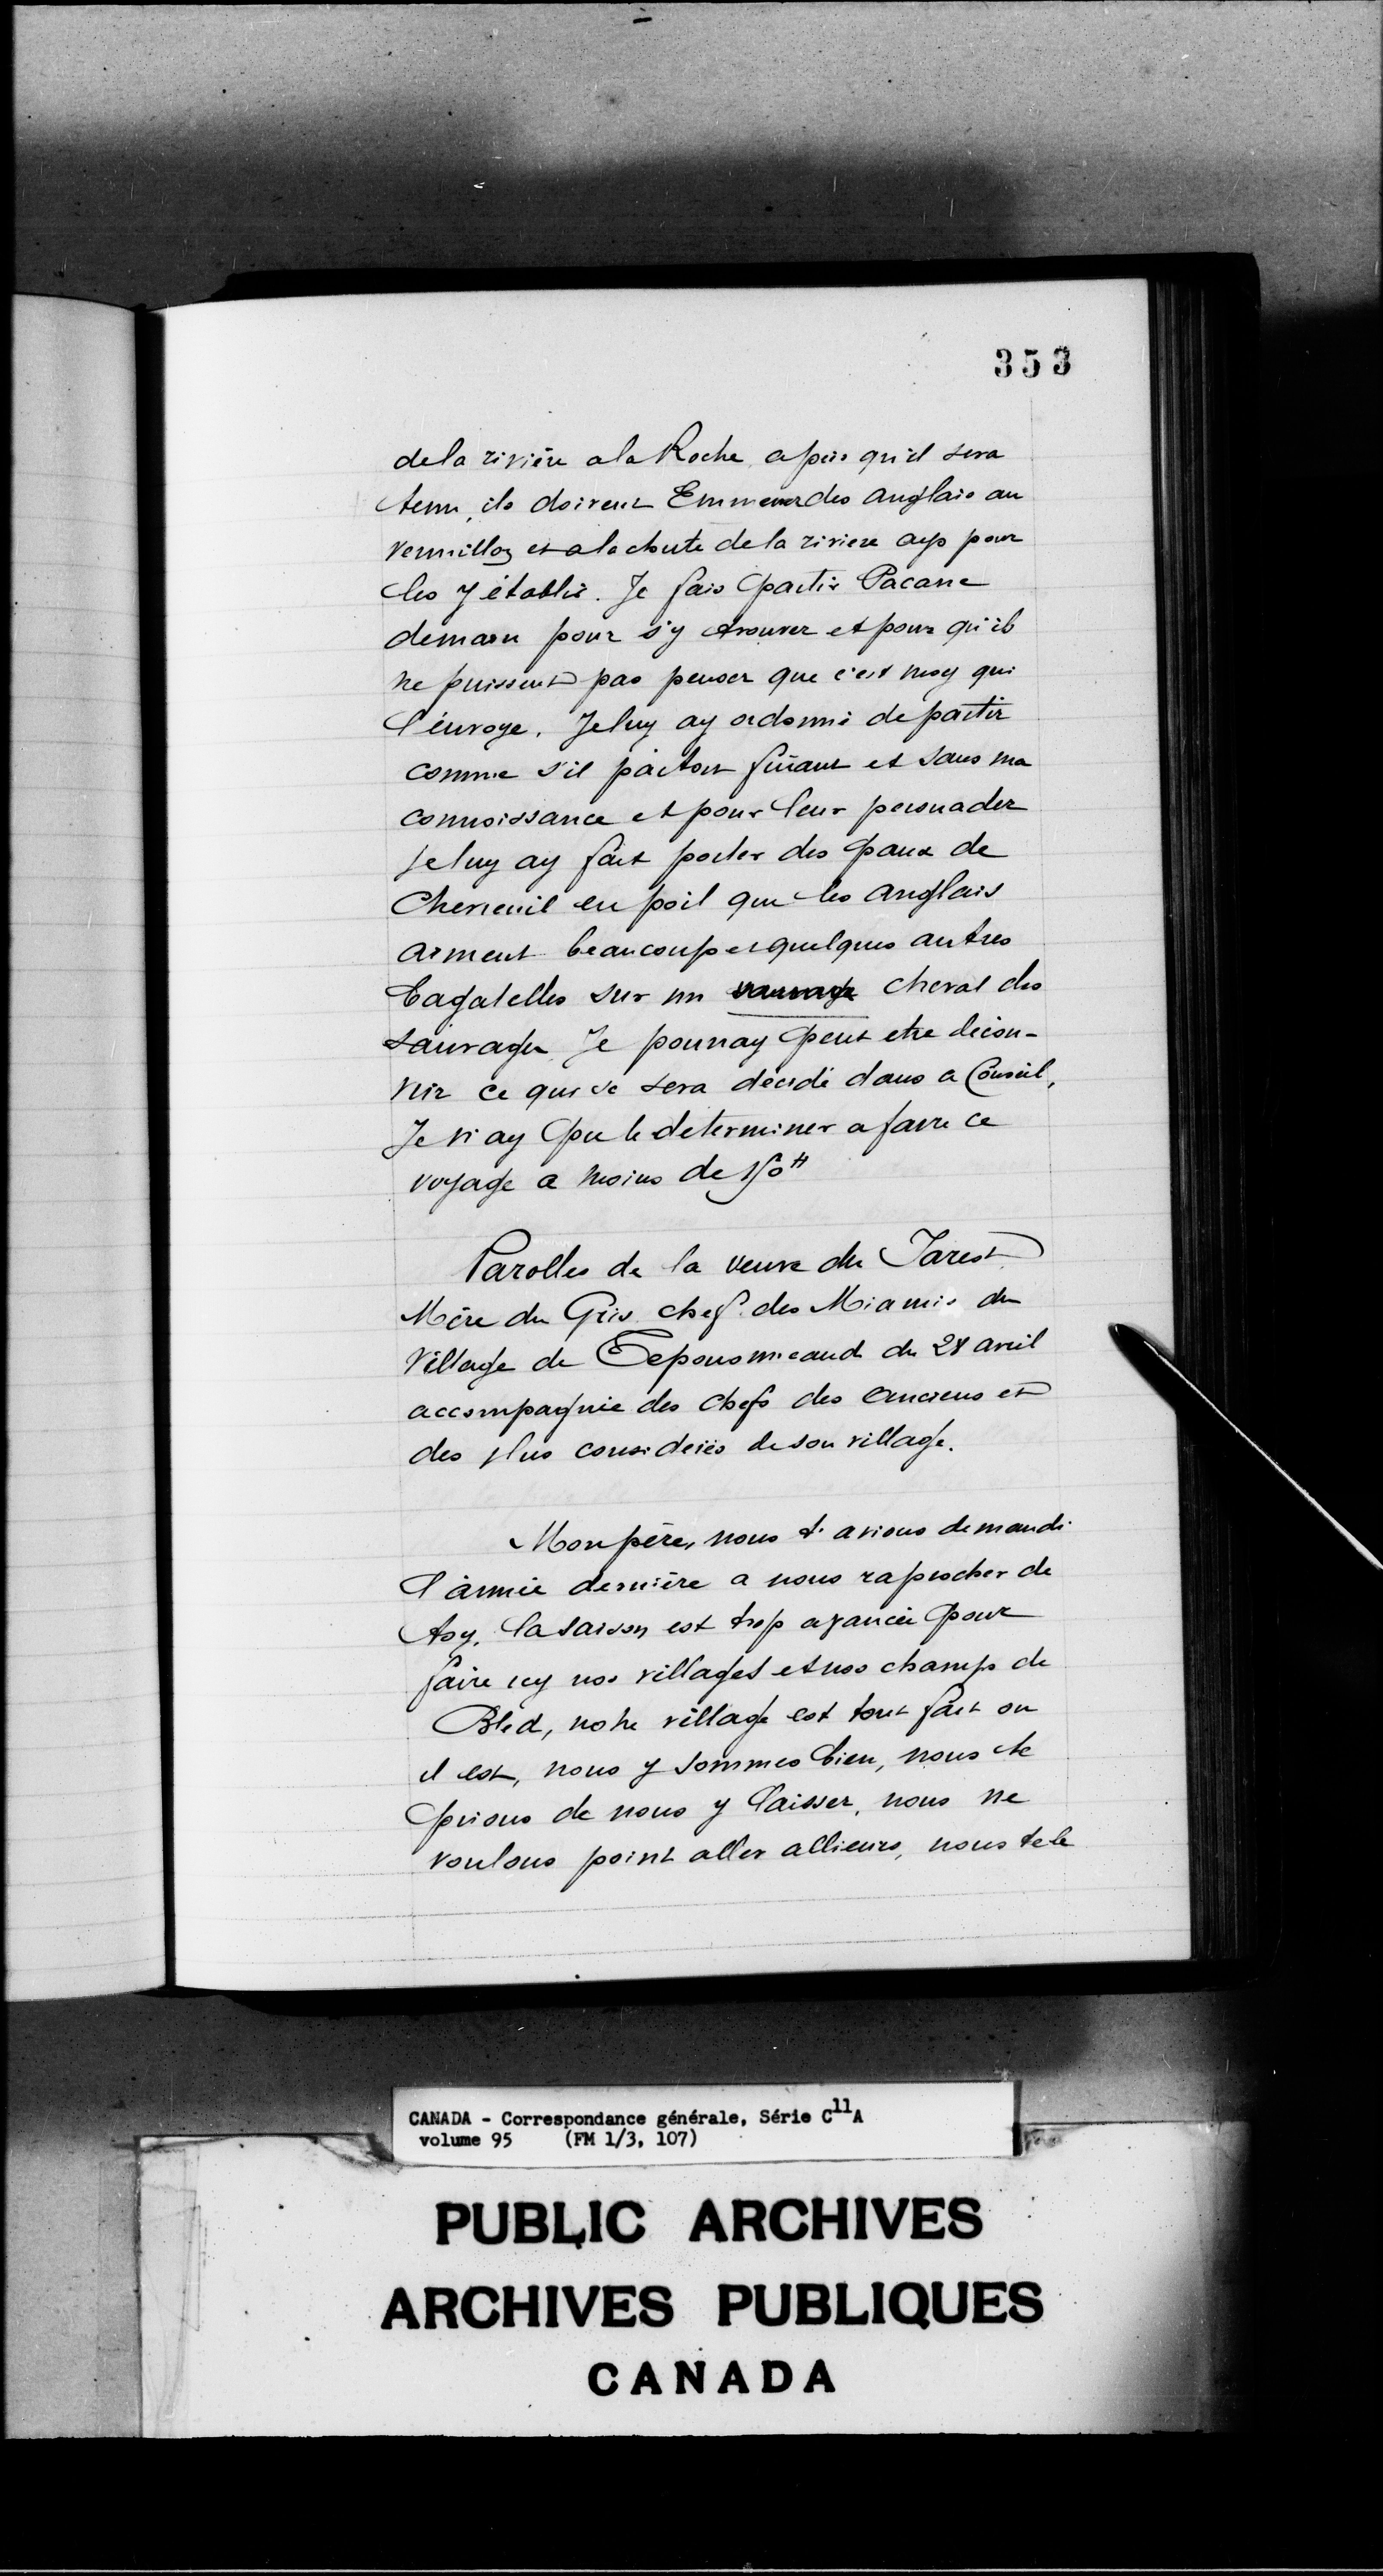 353
de la rivière a la Roche apris qu'il sera
tenu, ils doivent Emmener des anglais au
vermillon et a la chute de la riviere aup pour
les y établir. Je fais partir Pacane
demain pour s'y trouver et pour qu'ils
ne puissent pas penser que c'est moy qui
l'envoye. Je luy ay ordonné de partir
comme s'il partoit fuiant et sans ma
connoissance et pour leur persuader
Je luy ay fait porter des paux de
Chevreuil en poil que les anglais
aiment beaucoup et quelques autres
bagatelles sur un sauvage cheval des
sauvages Je pourray peut etre décou-
vrir ce qui se sera décidé dans ce Conseil,
Je n'ay pu le determiner a faire ce
voyage a moins de 150₶
Parolles de la veuve du Tarest
Mère du Gris chef des Miamis du
Village de Tepousmicaud du 28 avril
accompagnie des chefs des anciens et
des plus considerés de son village.
Mon père, nous t'avions demandé
l'année dernière a nous raprocher de
toy. la saison est trop avancée pour
faire icy nos villages et nos champs de
Bled, notre village est tout fait ou
il est, nous y sommes bien, nous te
prions de nous y laisser, nous ne
voulons point aller allieurs, nous te le
CANADA - Correspondance générale, Série C11A
volume 95 (FM 1/3, 107)
PUBLIC ARCHIVES
ARCHIVES PUBLIQUES
CANADA